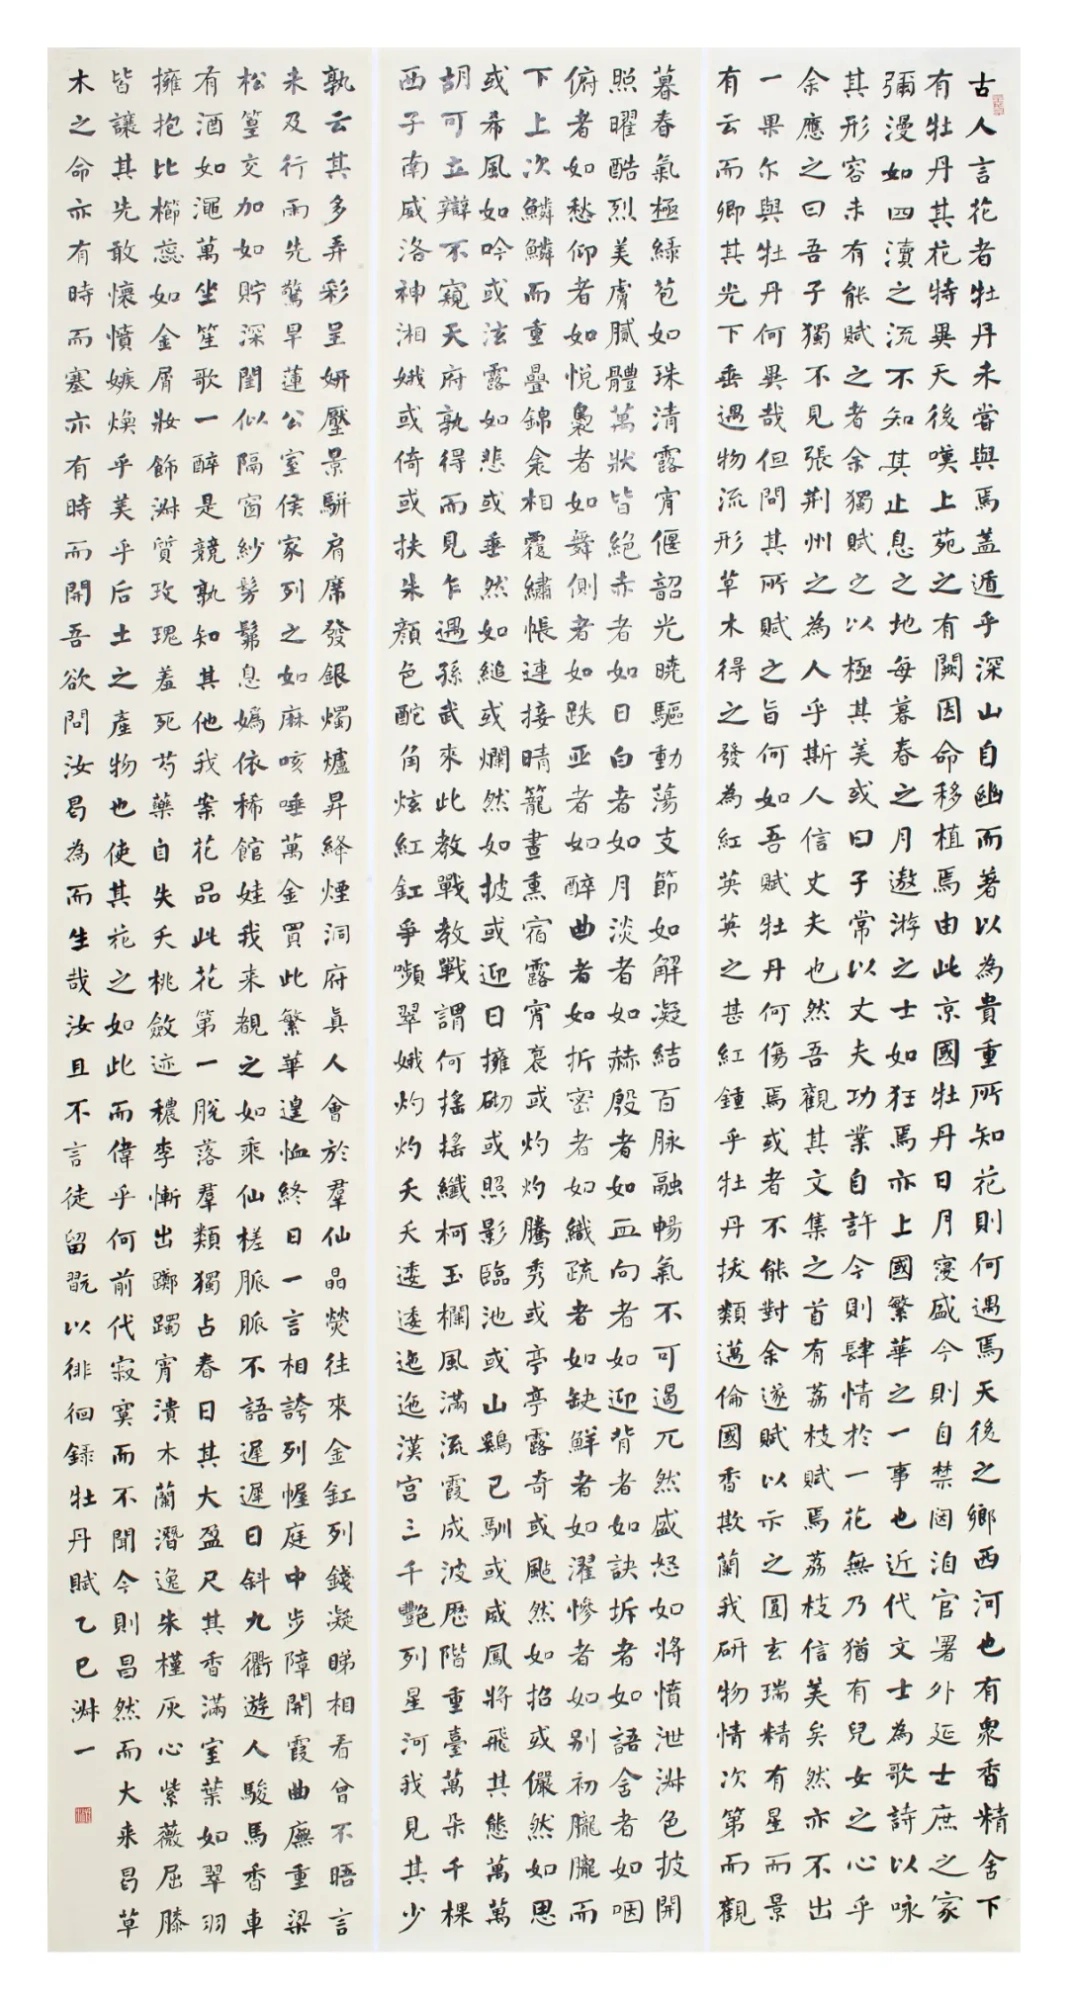 古人言花者牡丹未嘗與焉蓋遁乎深山自幽而著以為貴重所知花則何遇焉天後之鄉西河也有眾香精舍下
有牡丹其花特異天後嘆上苑之有闕因命移植焉由此京國牡丹日月寖盛今則自禁闼洎官署外延士庶之家
彌漫如四瀆之流不知其止息之地每暮春之月遨游之士如狂焉亦上國繁華之一事也近代文士為歌詩以咏
其形容未有能賦之者余獨賦之以極其美或曰子常以丈夫功業自許今則肆情於一花無乃猶有兒女之心乎
余應之曰吾子獨不見張荆州之為人乎斯人信丈夫也然吾觀其文集之首有荔枝賦焉荔枝信美矣然亦不出
一果尔與牡丹何異哉但問其所賦之旨何如吾賦牡丹何傷焉或者不能對余遂賦以示之圓玄瑞精有星而景
有云而卿其光下垂遇物流形草木得之發為紅英英之甚紅鍾乎牡丹拔類邁倫國香欺蘭我研物情次第而觀
暮春氣極緑苞如珠清露宵偃韶光曉驅動蕩支節如解凝結百脉融暢氣不可遏兀然盛怒如將憤泄淑色披開
照曜酷烈美膚膩體萬狀皆絕赤者如日白者如月淡者如赫殷者如血向者如迎背者如訣拆者如語含者如咽
俯者如愁仰者如悅裊者如舞側者如跌亞者如醉曲者如折密者如織疏者如缺鮮者如濯慘者如别初朧朧而
下上次鱗鱗而重疊錦衾相覆繡帳連接晴籠晝熏宿露宵裛或灼灼騰秀或亭亭露奇或飐然如招或儼然如思
或希風如吟或泫露如悲或垂然如縋或爛然如披或迎日擁砌或照影臨池或山鷄已馴或威鳳將飛其態萬萬
胡可立辯不窺天府孰得而見乍遇孫武來此教戰教戰謂何摇摇纖柯玉欄風滿流霞成波歷階重臺萬朵千棵
西子南威洛神湘娥或倚或扶朱顏色酡角炫紅釭爭嚬翠娥灼灼夭夭逶逶迤迤漢宮三千艷列星河我見其少
孰云其多弄彩呈妍壓景駢肩席發銀燭爐昇絳煙洞府真人會於羣仙晶熒往來金釭列錢凝睇相看曾不晤言
未及行雨先驚旱蓮公室侯家列之如麻咳唾萬金買此繁華遑恤終日一言相誇列幄庭中步障開霞曲廡重梁
松篁交加如貯深閨似隔窗紗髣髴息媯依稀館娃我来覩之如乘仙槎脈脈不語遲遲日斜九衢遊人駿馬香車
有酒如澠萬坐笙歌一醉是競孰知其他我案花品此花第一脫落羣類獨占春日其大盈尺其香滿室葉如翠羽
擁抱比櫛蕊如金屑妝飾淑質玫瑰羞死芍藥自失夭桃斂迹穠李慚出躑躅宵潰木蘭潛逸朱槿灰心紫薇屈膝
皆讓其先敢懷憤嫉煥乎美乎后土之產物也使其花之如此而偉乎何前代寂寞而不聞今則昌然而大来昌草
木之命亦有時而塞亦有時而開吾欲問汝曷為而生哉汝且不言徒留翫以徘徊錄牡丹賦乙巳淑一